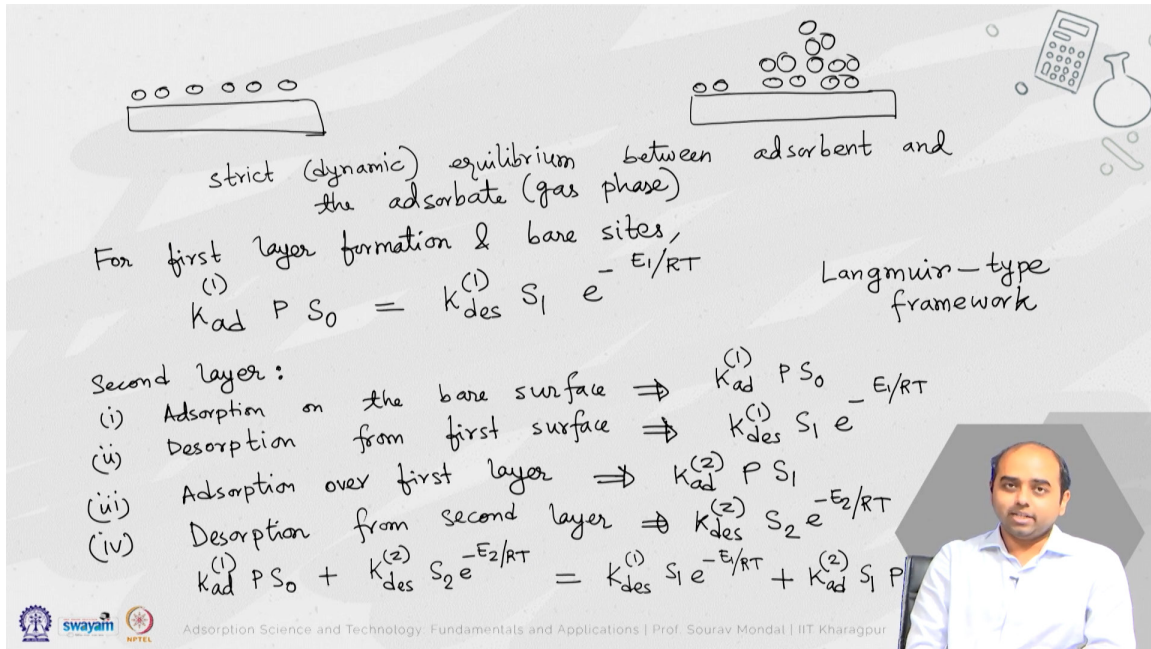 strict (dynamic) equilibrium between adsorbent and
the adsorbate (gas phase)
For first layer formation & bare sites,
K_ad^(1) P S_0 = K_des^(1) S_1 e^(-E_1/RT)
Langmuir-type
framework
Second layer:
(i) Adsorption on the bare surface ⇒ K_ad^(1) P S_0
(ii) Desorption from first surface ⇒ K_des^(1) S_1 e^(-E_1/RT)
(iii) Adsorption over first layer ⇒ K_ad^(2) P S_1
(iv) Desorption from second layer ⇒ K_des^(2) S_2 e^(-E_2/RT)
K_ad^(1) P S_0 + K_des^(2) S_2 e^(-E_2/RT) = K_des^(1) S_1 e^(-E_1/RT) + K_ad^(2) S_1 P
swayam
NPTEL
Adsorption Science and Technology: Fundamentals and Applications | Prof. Sourav Mondal | IIT Kharagpur